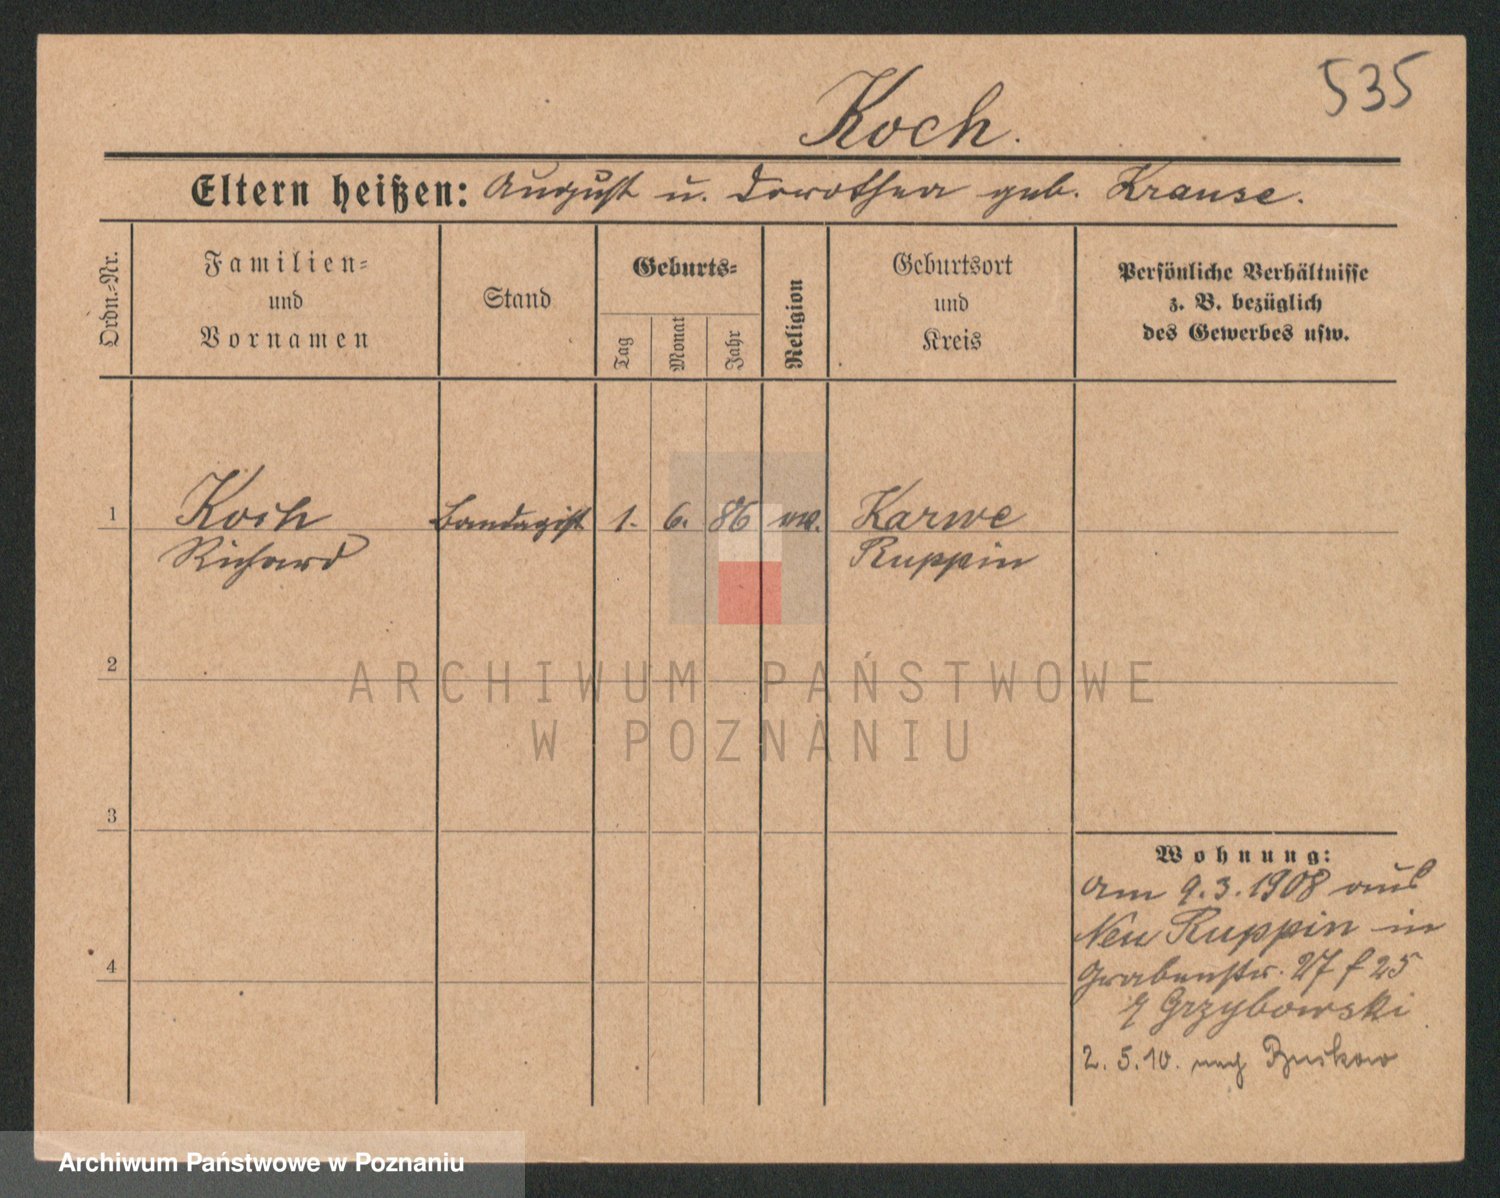 535
Koch.
Eltern heißen: August u. Dorothea geb. Krause.
Ordn.-Nr.
Familien- und Vornamen
Stand
Geburts-
Tag
Monat
Jahr
Religion
Geburtsort und Kreis
Persönliche Verhältnisse
z. B. bezüglich
des Gewerbes usw.
1 Koch Bandagist 1. 6. 86 ev. Karwe
Richard Ruppin
2
3
4
Wohnung:
am 9.3.1908 aus
Neu Ruppin in
Grabenstr. 27 f 25
Grzybowski
2. 5. 10. nach
ARCHIWUM PAŃSTWOWE
W POZNANIU
Archiwum Państwowe w Poznaniu